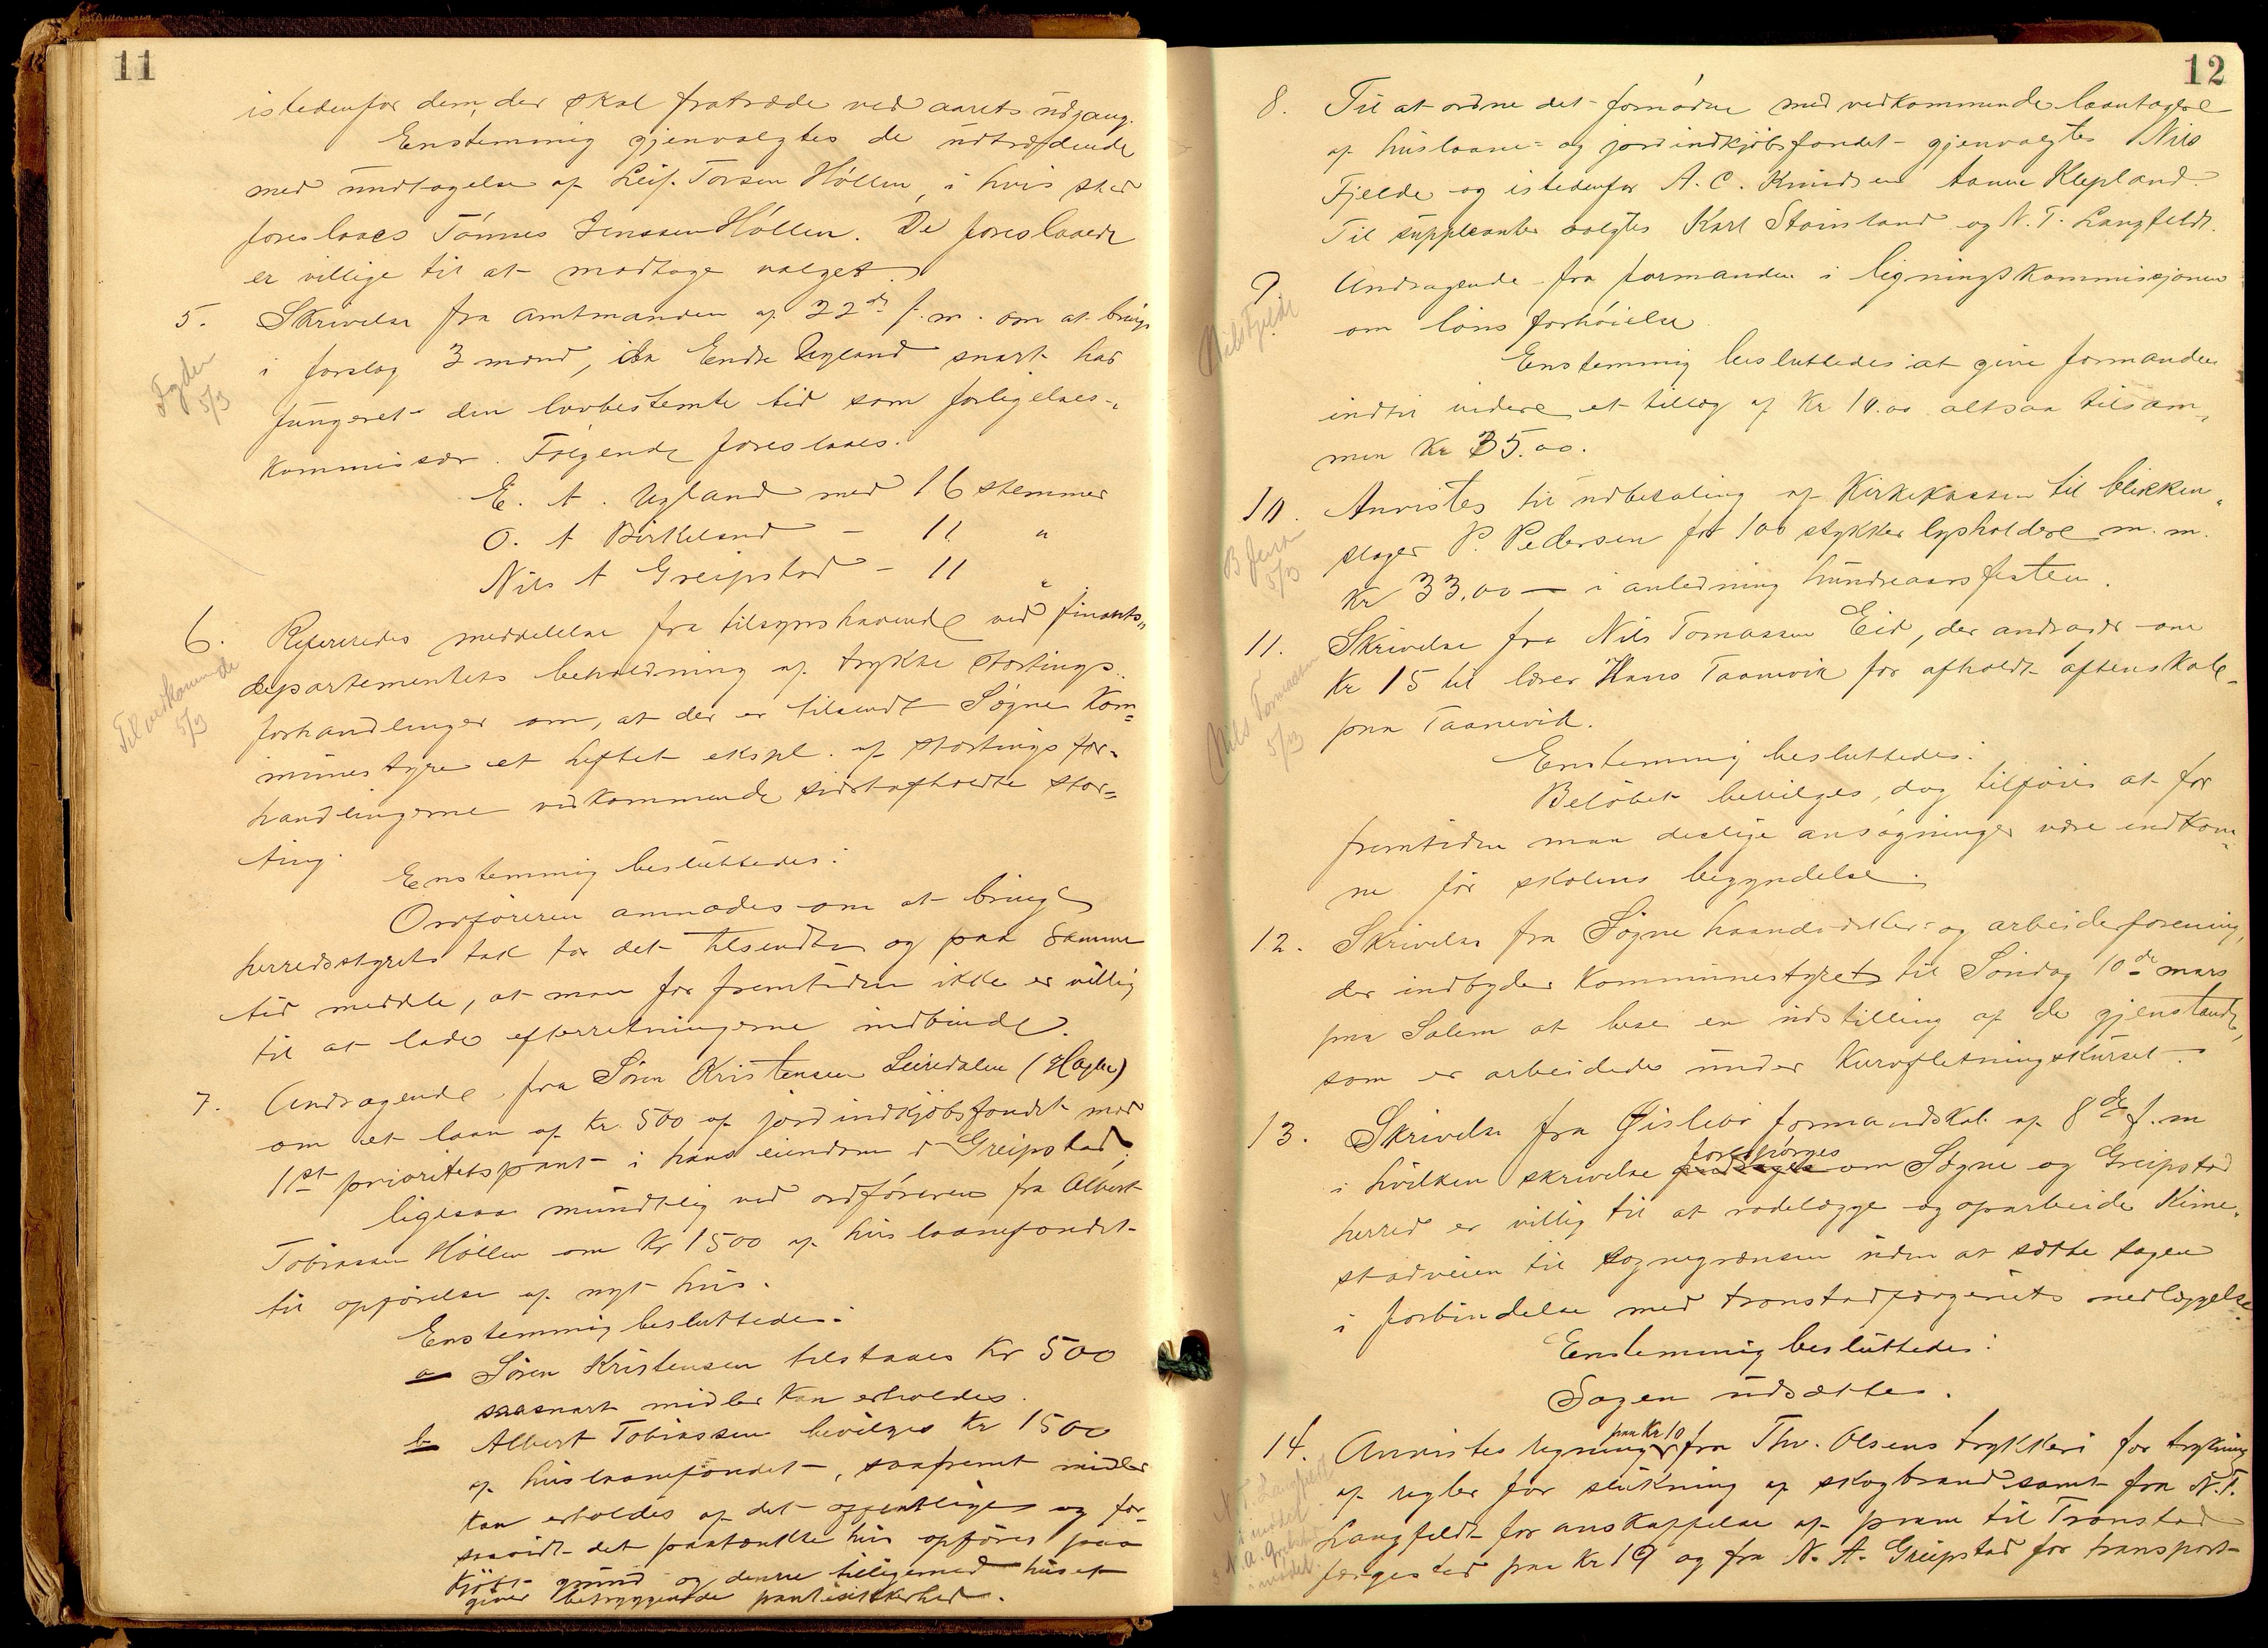 11
istedenfor dem, der skal fratræde ved aarets udgang.
Enstemmig gjenvalgtes de udtrædende
med undtagelse af Leif. Torsen Høllen, i hvis sted
foreslaaes Tønnes Jenssen Høllen. De foreslaaede
er villige til at modtage valget.
5. Skrivelse fra amtmanden af 22de f. m. om at bringe
i forslag 3 mænd, da Endre Ugland snart har
Fogden
5/3
fungeret den lovbestemte tid som forligelses-
kommissær. Følgende foreslaaes:
E. A. Ugland med 16 stemmer
O. A Birkeland - 11 "
Nils A Greipstad - 11 "
6. Refereredes meddelelse fra tilsynshavende ved finants-
departementets beholdning af trykte stortings-
Til vedkommende
5/3
forhandlinger om, at der er tilsendt Søgne kom-
munestyre et heftet ekspl. af stortingsfor-
handlingerne vedkommende sidstafholdte stor-
ting.
Enstemmig besluttedes:
Ordføreren anmodes om at bringe
herredsstyrets tak for det tilsendte og paa samme
tid meddele, at man for fremtiden ikke er villig
til at lade efterretningerne indbinde.
7. Andragende fra Søren Kristensen Leiredalen (Hagen)
om et laan af kr. 500 af jordindkjøbsfondet mod
1ste prioritetspant i hans eiendom i Greipstad;
ligesaa mundtlig ved ordføreren fra Albert
Tobiassen Høllen om kr 1500 af huslaanefondet
til opførelse af nyt hus.
Enstemmig besluttedes:
a Søren Kristensen tilstaaes kr 500
saasnart midler kan erholdes.
b Albert Tobiassen bevilges kr 1500
af huslaanefondet, saafremt midler
kan erholdes af det offentlige og for-
saavidt det paatænkte hus opføres paa
kjøbt grund og denne tilligemed huset
giver betryggende pantesikkerhed.
12
8. Til at ordne det fornødne med vedkommende laantagere
af huslaane- og jordindkjøbsfondet gjenvalgtes Nils
Fjelde og istedenfor A. C. Knudsen Aanen Klepland.
Til suppleanter valgtes Karl Stainsland og N. T. Langfeldt.
9 Andragende fra formanden i ligningskommissjonen
Nils Fjelde
om lønsforhøielse.
Enstemmig besluttedes at give formanden
indtil videre et tillæg af kr 10.00 altsaa tilsam-
men kr 35.00.
10. Anvistes til udbetaling af kirkekassen til blikken-
slager P. Pedersen for 100 stykker lysholdere m. m.
B Jensen
5/3
kr 33.00 — i anledning hundreaarsfesten.
11. Skrivelse fra Nils Tomassen Eid, der andrager om
kr 15 til lærer Hans Taanevik for afholdt aftenskole
Nils Tomassen
5/3
paa Taanevik.
Enstemmig besluttedes:
Beløbet bevilges, dog tilføies at for
fremtiden maa deslige ansøgninger være indkom-
ne før skolens begyndelse.
12. Skrivelse fra Søgne haandverker- og arbeiderforening,
der indbyder kommunestyret til Søndag 10de mars
paa Salem at bese en udstilling af de gjenstande,
som er arbeidede under kurvfletningskurset.
13. Skrivelse fra Øislebø formandskab af 8de f. m
i hvilken skrivelse forespørges om Søgne og Greipstad
herred er villig til at rodelægge og oparbeide Kime-
stadveien til sognegrænsen uden at sætte sagen
i forbindelse med Tronstadfærgeriets nedlæggelse.
Enstemmig besluttedes:
Sagen udsættes.
14. Anvistes regning paa kr 10 fra Thv. Olsens trykkeri for trykning
af regler for slukning af skogbrand samt fra N. T.
N. T. Langfeldt
i mødet
Langfeldt for anskaffelse af pram til Tronstad
N. A. Greipstad
i mødet.
færgested paa kr 19 og fra N. A. Greipstad for transport